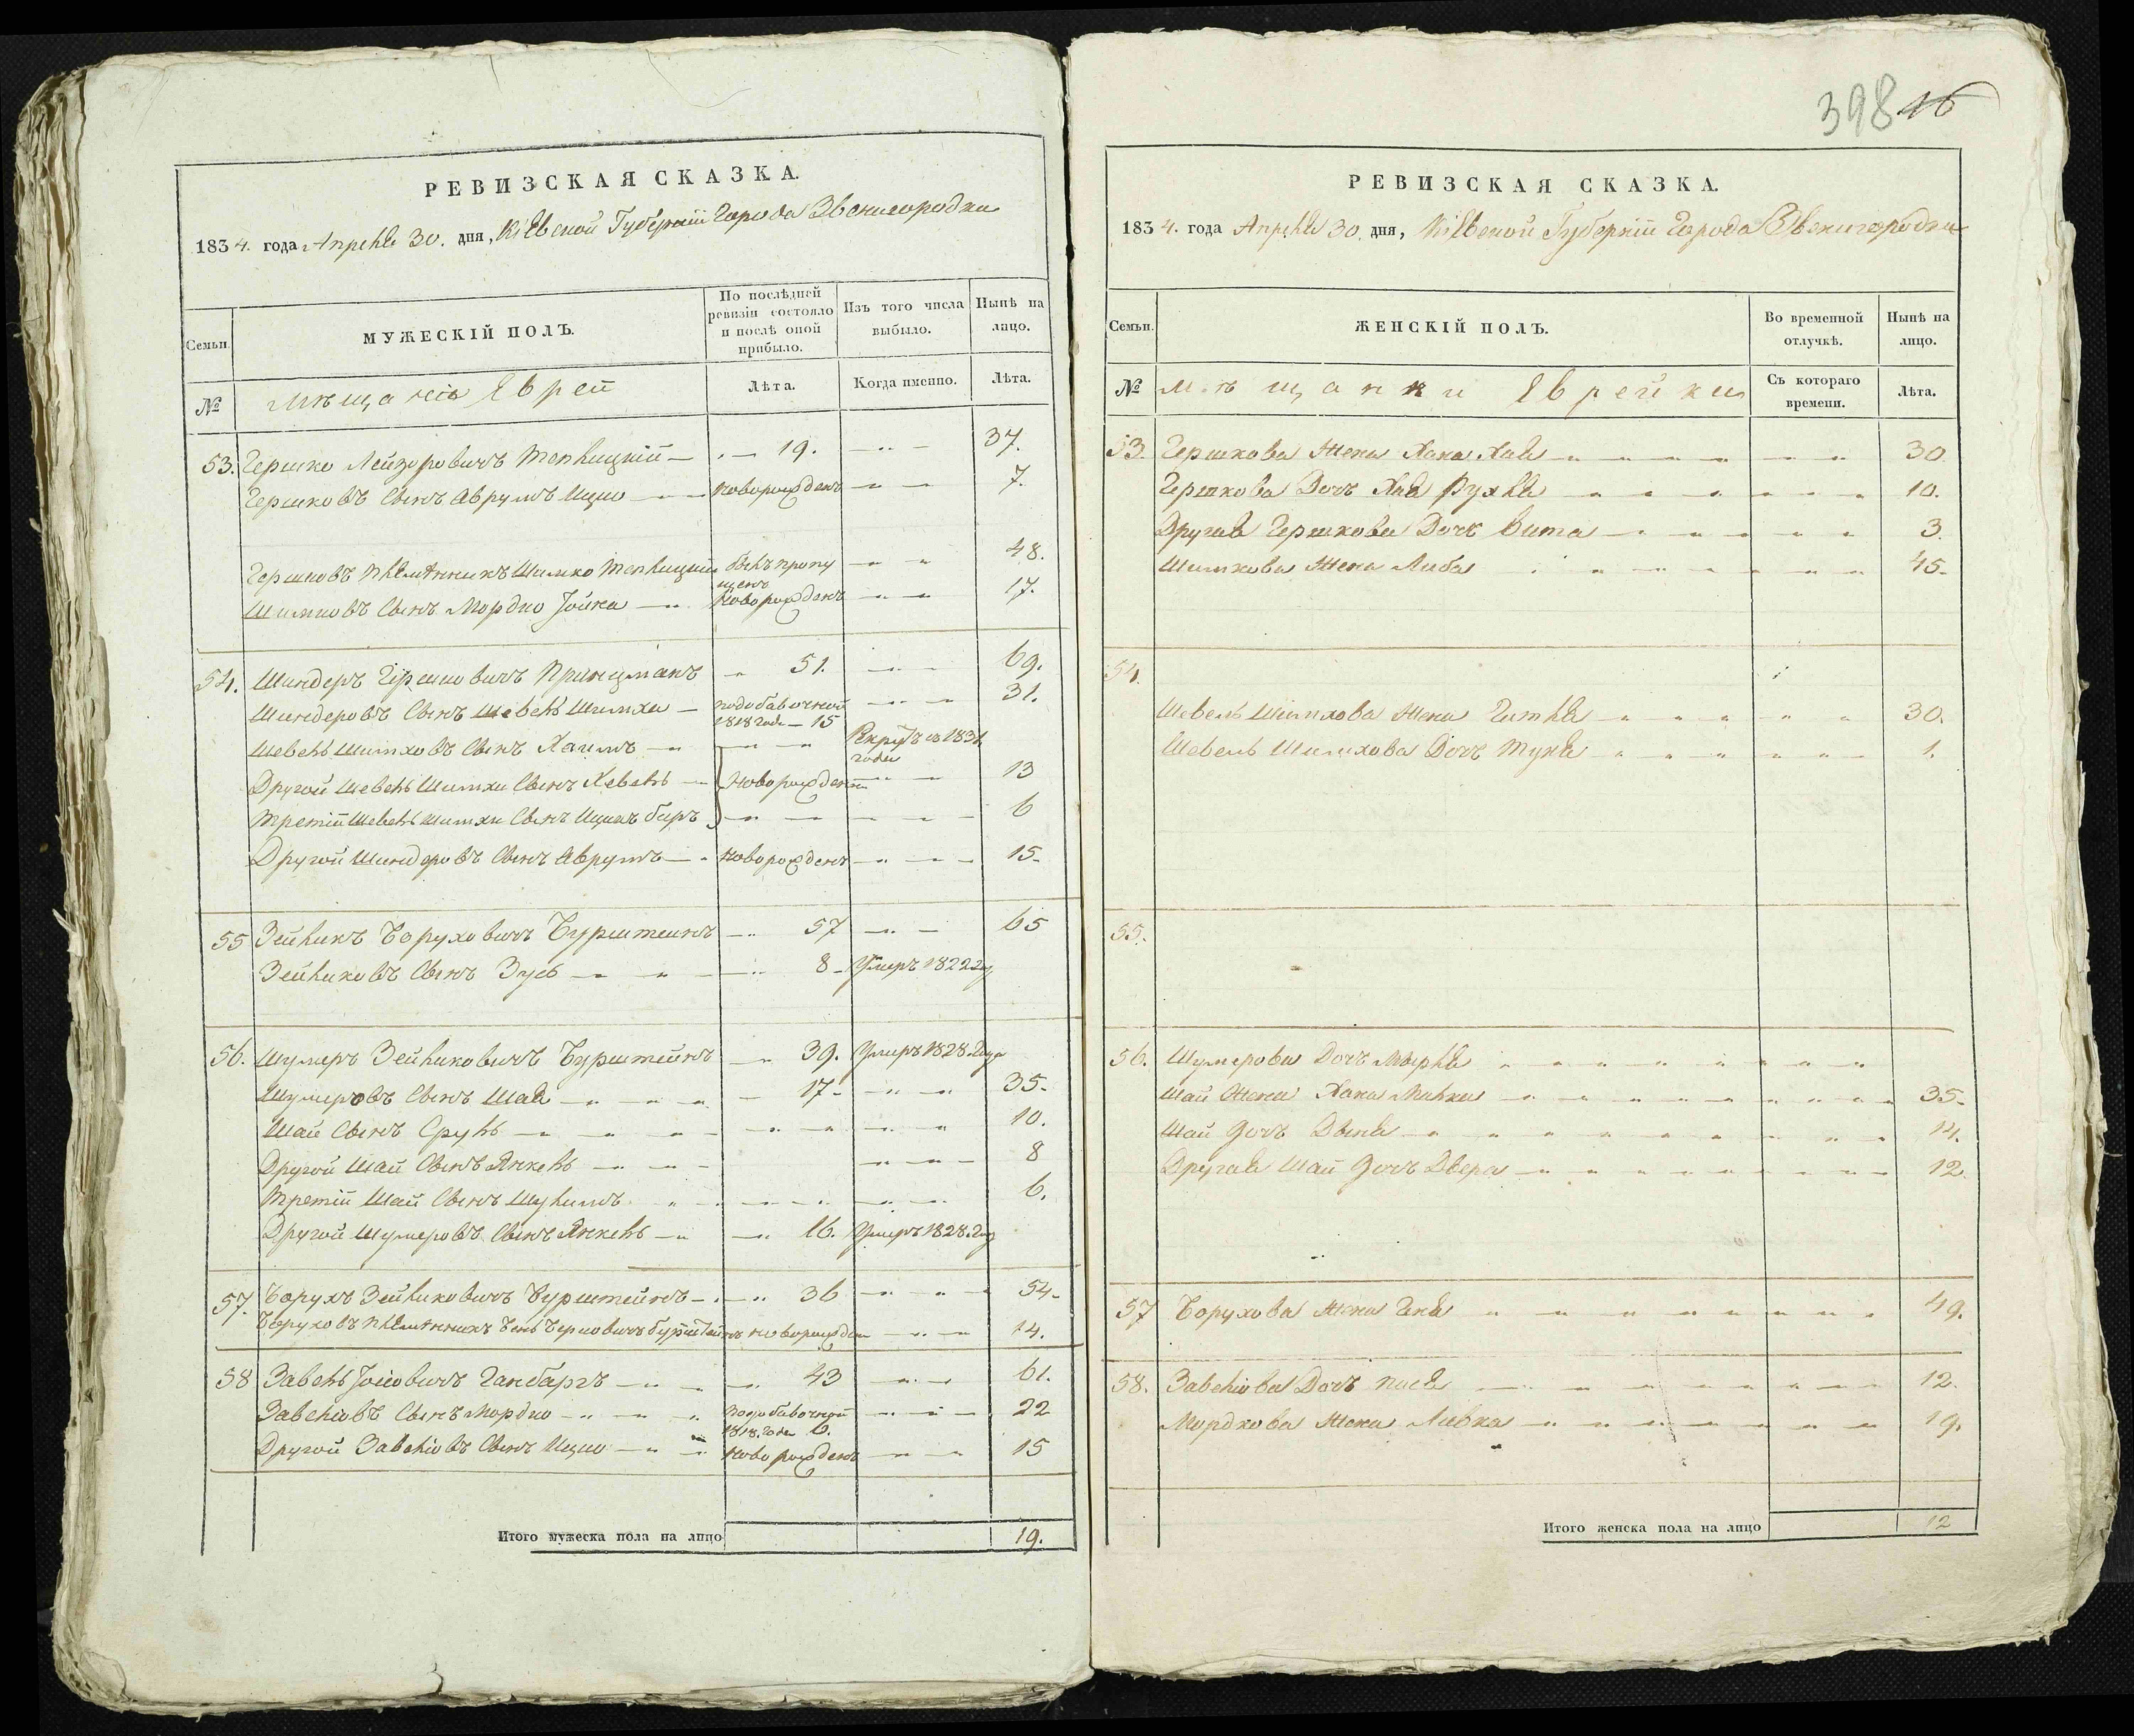 РЕВИЗСКАЯ СКАЗКА.
1834. года Апреля 30. дня, Кіевской Губерніи Города Звенигородки
Семьи.
МУЖЕСКІЙ ПОЛЪ.
По послѣдней ревизіи состояло и послѣ оной прибыло.
Изъ того числа выбыло.
Нынѣ на лицо.
№
Мѣщане Евреи
Лѣта.
Когда именно.
Лѣта.
53. Гершко Лейзоровичъ Теплицкій 19. 37.
Гершковъ Сынъ Аврумъ Ицко новорожденъ 7.
Гершковъ племянникъ Шимко Теплицкий былъ пропущенъ 48.
Шимковъ Сынъ Мордко Іойна Новорожденъ 17.
54. Шиндеръ Гершковичъ Принцманъ 51. 69.
Шиндеровъ Сынъ Шевель Шимха подобавочной 1818 года 15 31.
Шевель Шимховъ Сынъ Хаимъ Рекрутъ въ 1831 годе
Другой Шевель Шимхи Сынъ Хевель Новорожденны 13
Третій Шевель Шимхи Сынъ Ицикъ беръ 6
Другой Шиндеровъ Сынъ Аврумъ Новорожденъ 15.
55 Зейликъ Боруховичъ Бурштейнъ 57 65
Зейликовъ Сынъ Зусь 8 Умеръ 1822 го
56. Шумеръ Зейликовичъ Бурштейнъ 39. Умеръ 1828 года
Шумеровъ Сынъ Шая 17 35.
Шаи Сынъ Сруль 10.
Другой Шаи Сынъ Янкель 8
Третій Шаи Сынъ Шулимъ 6.
Другой Шумеровъ Сынъ Янкель 16. Умеръ 1828 Год
57. Борухъ Зейликовичъ Бурштейнъ 36 54.
Боруховъ племянникъ Бень Берковичъ бурштейнъ новорожден 14.
58 Завель Іосіовичъ Ганбаргъ 43 61.
Завеліовъ Сынъ Мордко подобавочной 1818. года 6. 22
Другой Завеліовъ Сынъ Ицко Новорожденъ 15
Итого мужеска пола на лицо 19.
398 16
РЕВИЗСКАЯ СКАЗКА.
1834. года Апреля 30. дня, Кіевской Губерніи Города Звенигородки
Семьи.
ЖЕНСКІЙ ПОЛЪ.
Во временной отлучкѣ.
Нынѣ на лицо.
№
Мѣщанки Еврейки
Съ котораго времени.
Лѣта.
53. Гершкова Жена Хана Хая 30.
Гершкова Дочь Хая Рухля 10.
Другая Гершкова Дочь Вита 3.
Шимкова Жена Либа 45.
54.
Шевель Шимхова Жена Гитля 30.
Шевель Шимхова Дочь 1.
55.
56. Шумерова Дочь Мырля
Шаи Жена Хана Малка 35.
Шаи Дочь Двыня 14.
Другая Шаи Дочь Двера 12.
57 Борухова Жена Геня 49.
58. Завеліова Дочь Пися 12.
Мордкова Жена Ривка 19.
Итого женска пола на лицо 12